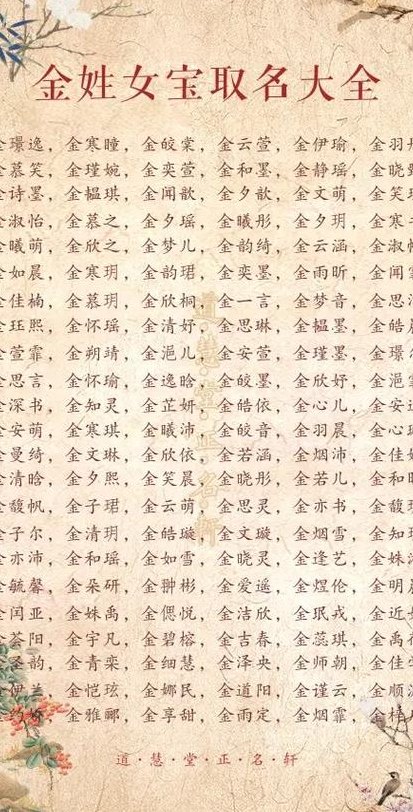 金姓女宝取名大全
金璟逸，金寒瞳，金皎棠，金云萱，金伊瑜，金羽
金慕笑，金瑾婉，金奕萱，金和墨，金静瑶，金晓
金诗墨，金韫琪，金闻歆，金夕歆，金文萌，金笑
金淑怡，金慕之，金夕瑶，金曦彤，金夕玥，金寒
金曦萌，金欣之，金梦儿，金韵绮，金云涵，金淑
金如晨，金寒玥，金韵珺，金奕墨，金雨昕，金闻
金佳楠，金慕玥，金欣桐，金一言，金梦音，金思
金珏熙，金怀瑶，金清妤，金思琳，金韫墨，金皓
金萱霏，金朔靖，金浥儿，金安萱，金瑾墨，金璟
金思言，金怀瑜，金逸晗，金皎墨，金欣妤，金浥
金深书，金知灵，金芷妍，金皓依，金心儿，金安
金安萌，金寒琪，金曦沛，金皎音，金羽晨，金心
金曼绮，金文琳，金欣依，金若涵，金烟沛，金佳
金清晗，金夕熙，金笑晨，金晓彤，金若儿，金和
金馥帆，金子珺，金云萌，金思灵，金亦书，金馥
金子尔，金清玥，金皓璇，金文璇，金烟雪，金知
金亦沛，金和瑶，金如雪，金晓灵，金逢艺，金姝
金毓馨，金朵研，金翀彬，金爱遥，金煜伦，金明
金闰亚，金姝禹，金偲悦，金洁欣，金珉戎，金近
金荟阳，金宇凡，金碧榕，金吉春，金蕊琪，金禹
金圣韵，金青栾，金细慧，金泽央，金师朝，金佳
金伊兰，金恺玹，金娜民，金道阳，金谨云，金顺
金雅郦，金享甜，金雨定，金烟霏，金
道·慧·堂·正·名·轩
道·慧·堂·正·名·轩